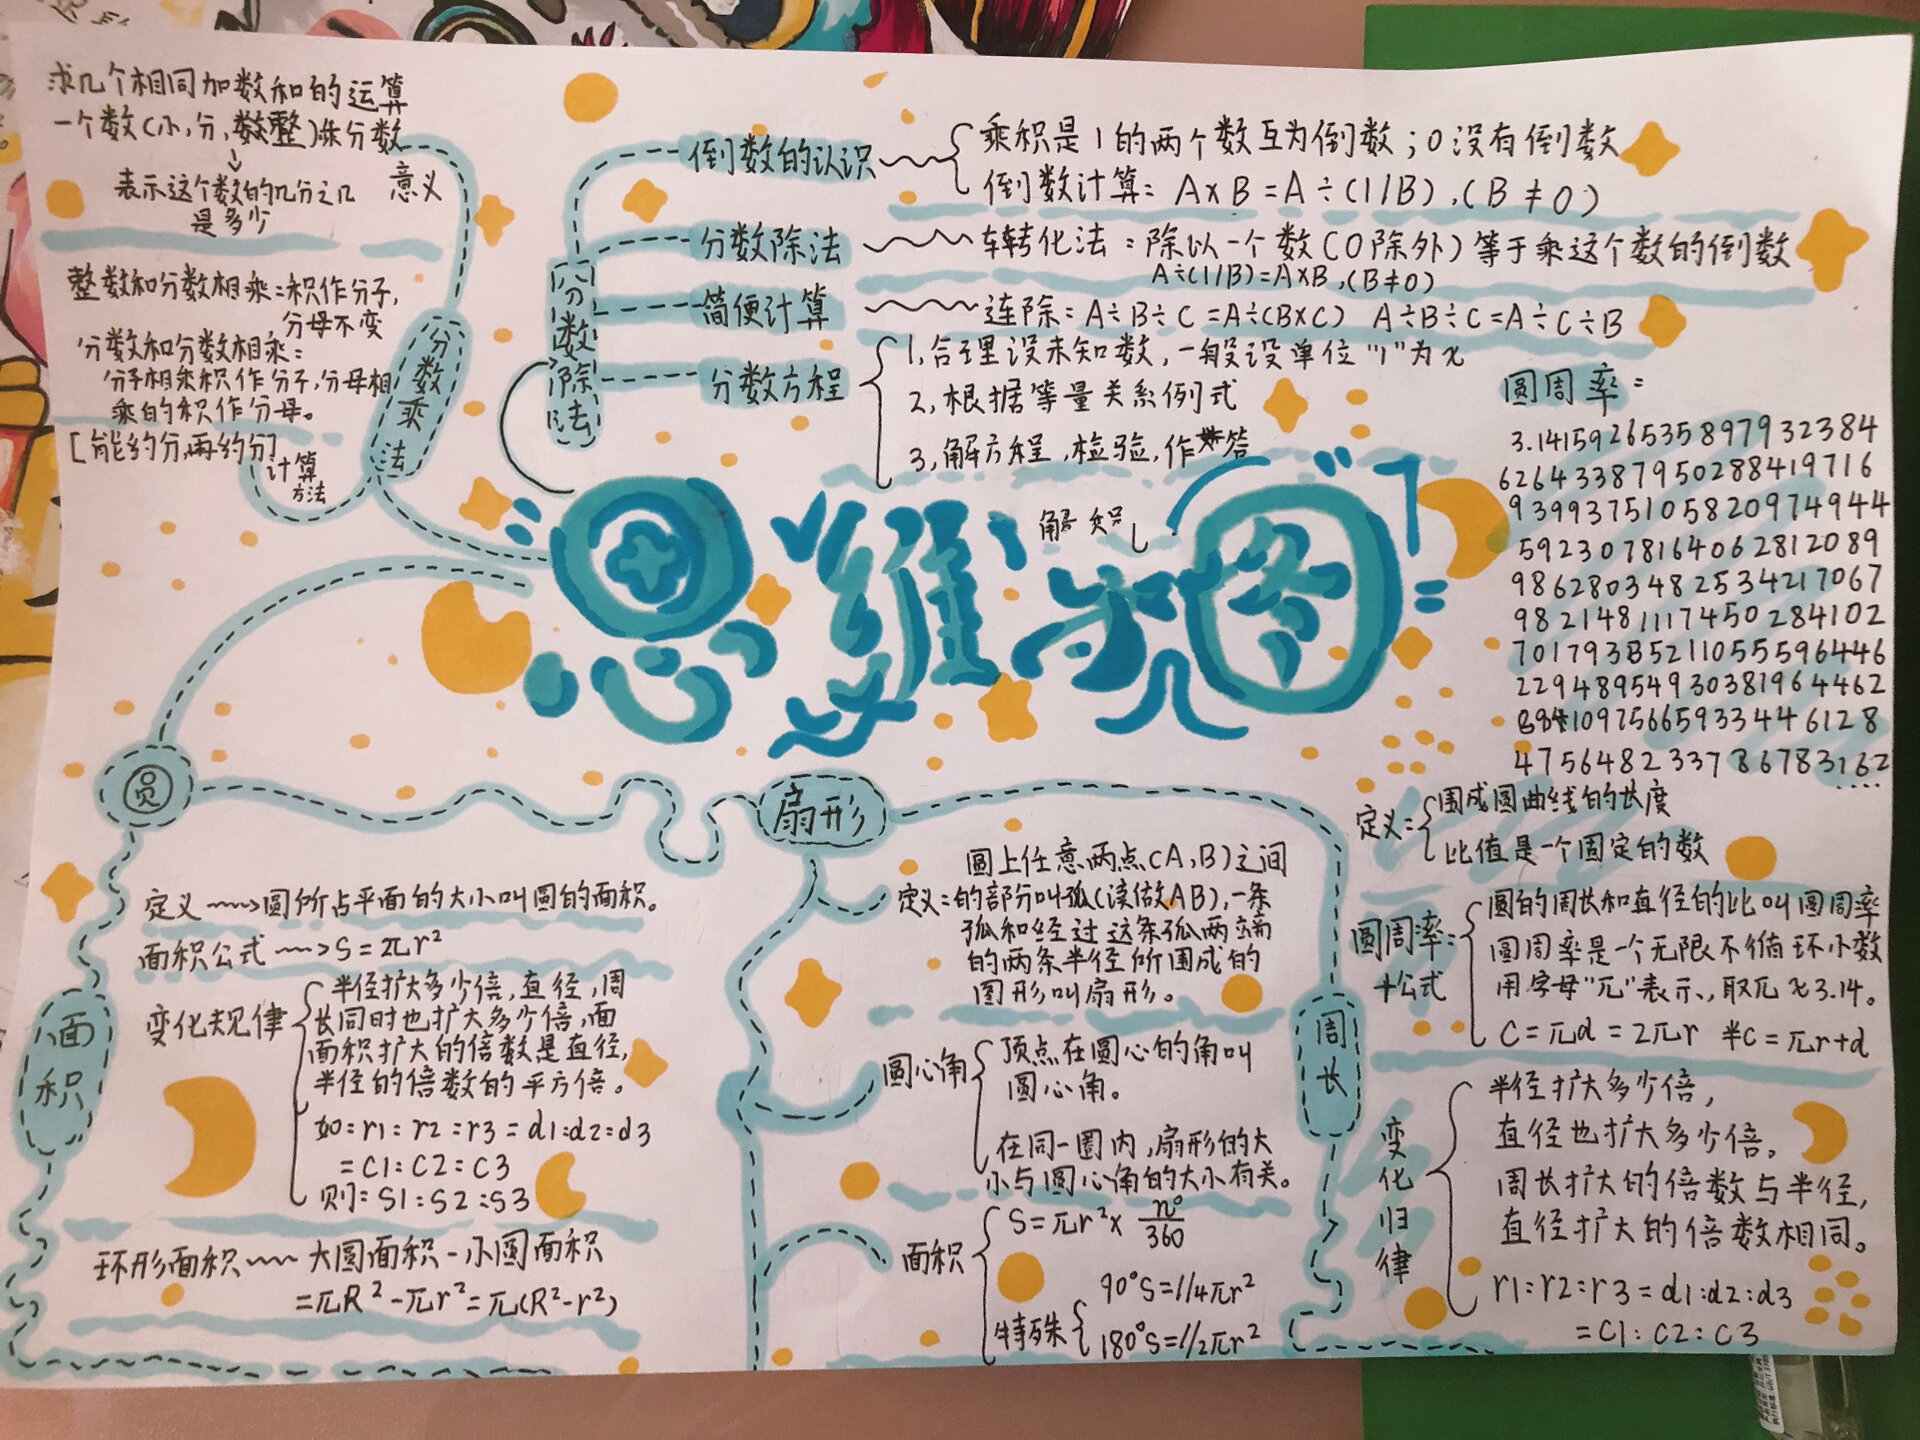 求几个相同加数和的运算
一个数(小,分,数整)乘分数
表示这个数的几分之几
是多少
意义
整数和分数相乘:积作分子,
分母不变
分数和分数相乘:
分子相乘积作分子,分母相
乘的积作分母。
[能约分,再约分]
计算
方法
分数乘法
分数除法
倒数的认识
乘积是1的两个数互为倒数;0没有倒数
倒数计算: A×B=A÷(1/B),(B≠0)
分数除法
转化法:除以一个数(0除外)等于乘这个数的倒数
A÷(1/B)=A×B,(B≠0)
简便计算
连除:A÷B÷C=A÷(B×C) A÷B÷C=A÷C÷B
分数方程
1,合理设未知数,一般设单位"1"为x
2,根据等量关系例式
3,解方程,检验,作答
思维导图
圆周率:
3.1415926535897932384
6264338795028841 9716
939937510582097494 4
592307816406281 2089
986280348253421 7067
98214811174502 84102
701793852110555 96446
229489549303819 64462
1097566593344 6128
4756482337 8678 3162
....
圆
扇形
面积
定义 圆所占平面的大小叫圆的面积。
面积公式 S=2πr²
变化规律
半径扩大多少倍,直径,周
长同时也扩大多少倍,面
面积扩大的倍数是直径,
半径的倍数的平方倍。
如:r1:r2:r3=d1:d2:d3
=C1:C2:C3
则:S1:S2:S3
环形面积 大圆面积-小圆面积
=πR²-πr²=π(R²-r²)
圆上任意两点(A,B)之间
定义:的部分叫弧(读做AB),一条
弧和经过这条弧两端
的两条半径所围成的
图形叫扇形。
圆心角
顶点在圆心的角叫
圆心角。
在同一圆内,扇形的大
小与圆心角的大小有关。
面积
S=πr²×n°/360
特殊
90°S=1/4πr²
180°S=1/2πr²
周长
定义:
围成圆曲线的长度
比值是一个固定的数
圆周率:
+公式
圆的周长和直径的比叫圆周率
圆周率是一个无限不循环小数
用字母"π"表示,取π≈3.14。
C=πd=2πr 半C=πr+d
变化归律
半径扩大多少倍,
直径也扩大多少倍。
周长扩大的倍数与半径,
直径扩大的倍数相同。
r1:r2:r3=d1:d2:d3
=C1:C2:C3